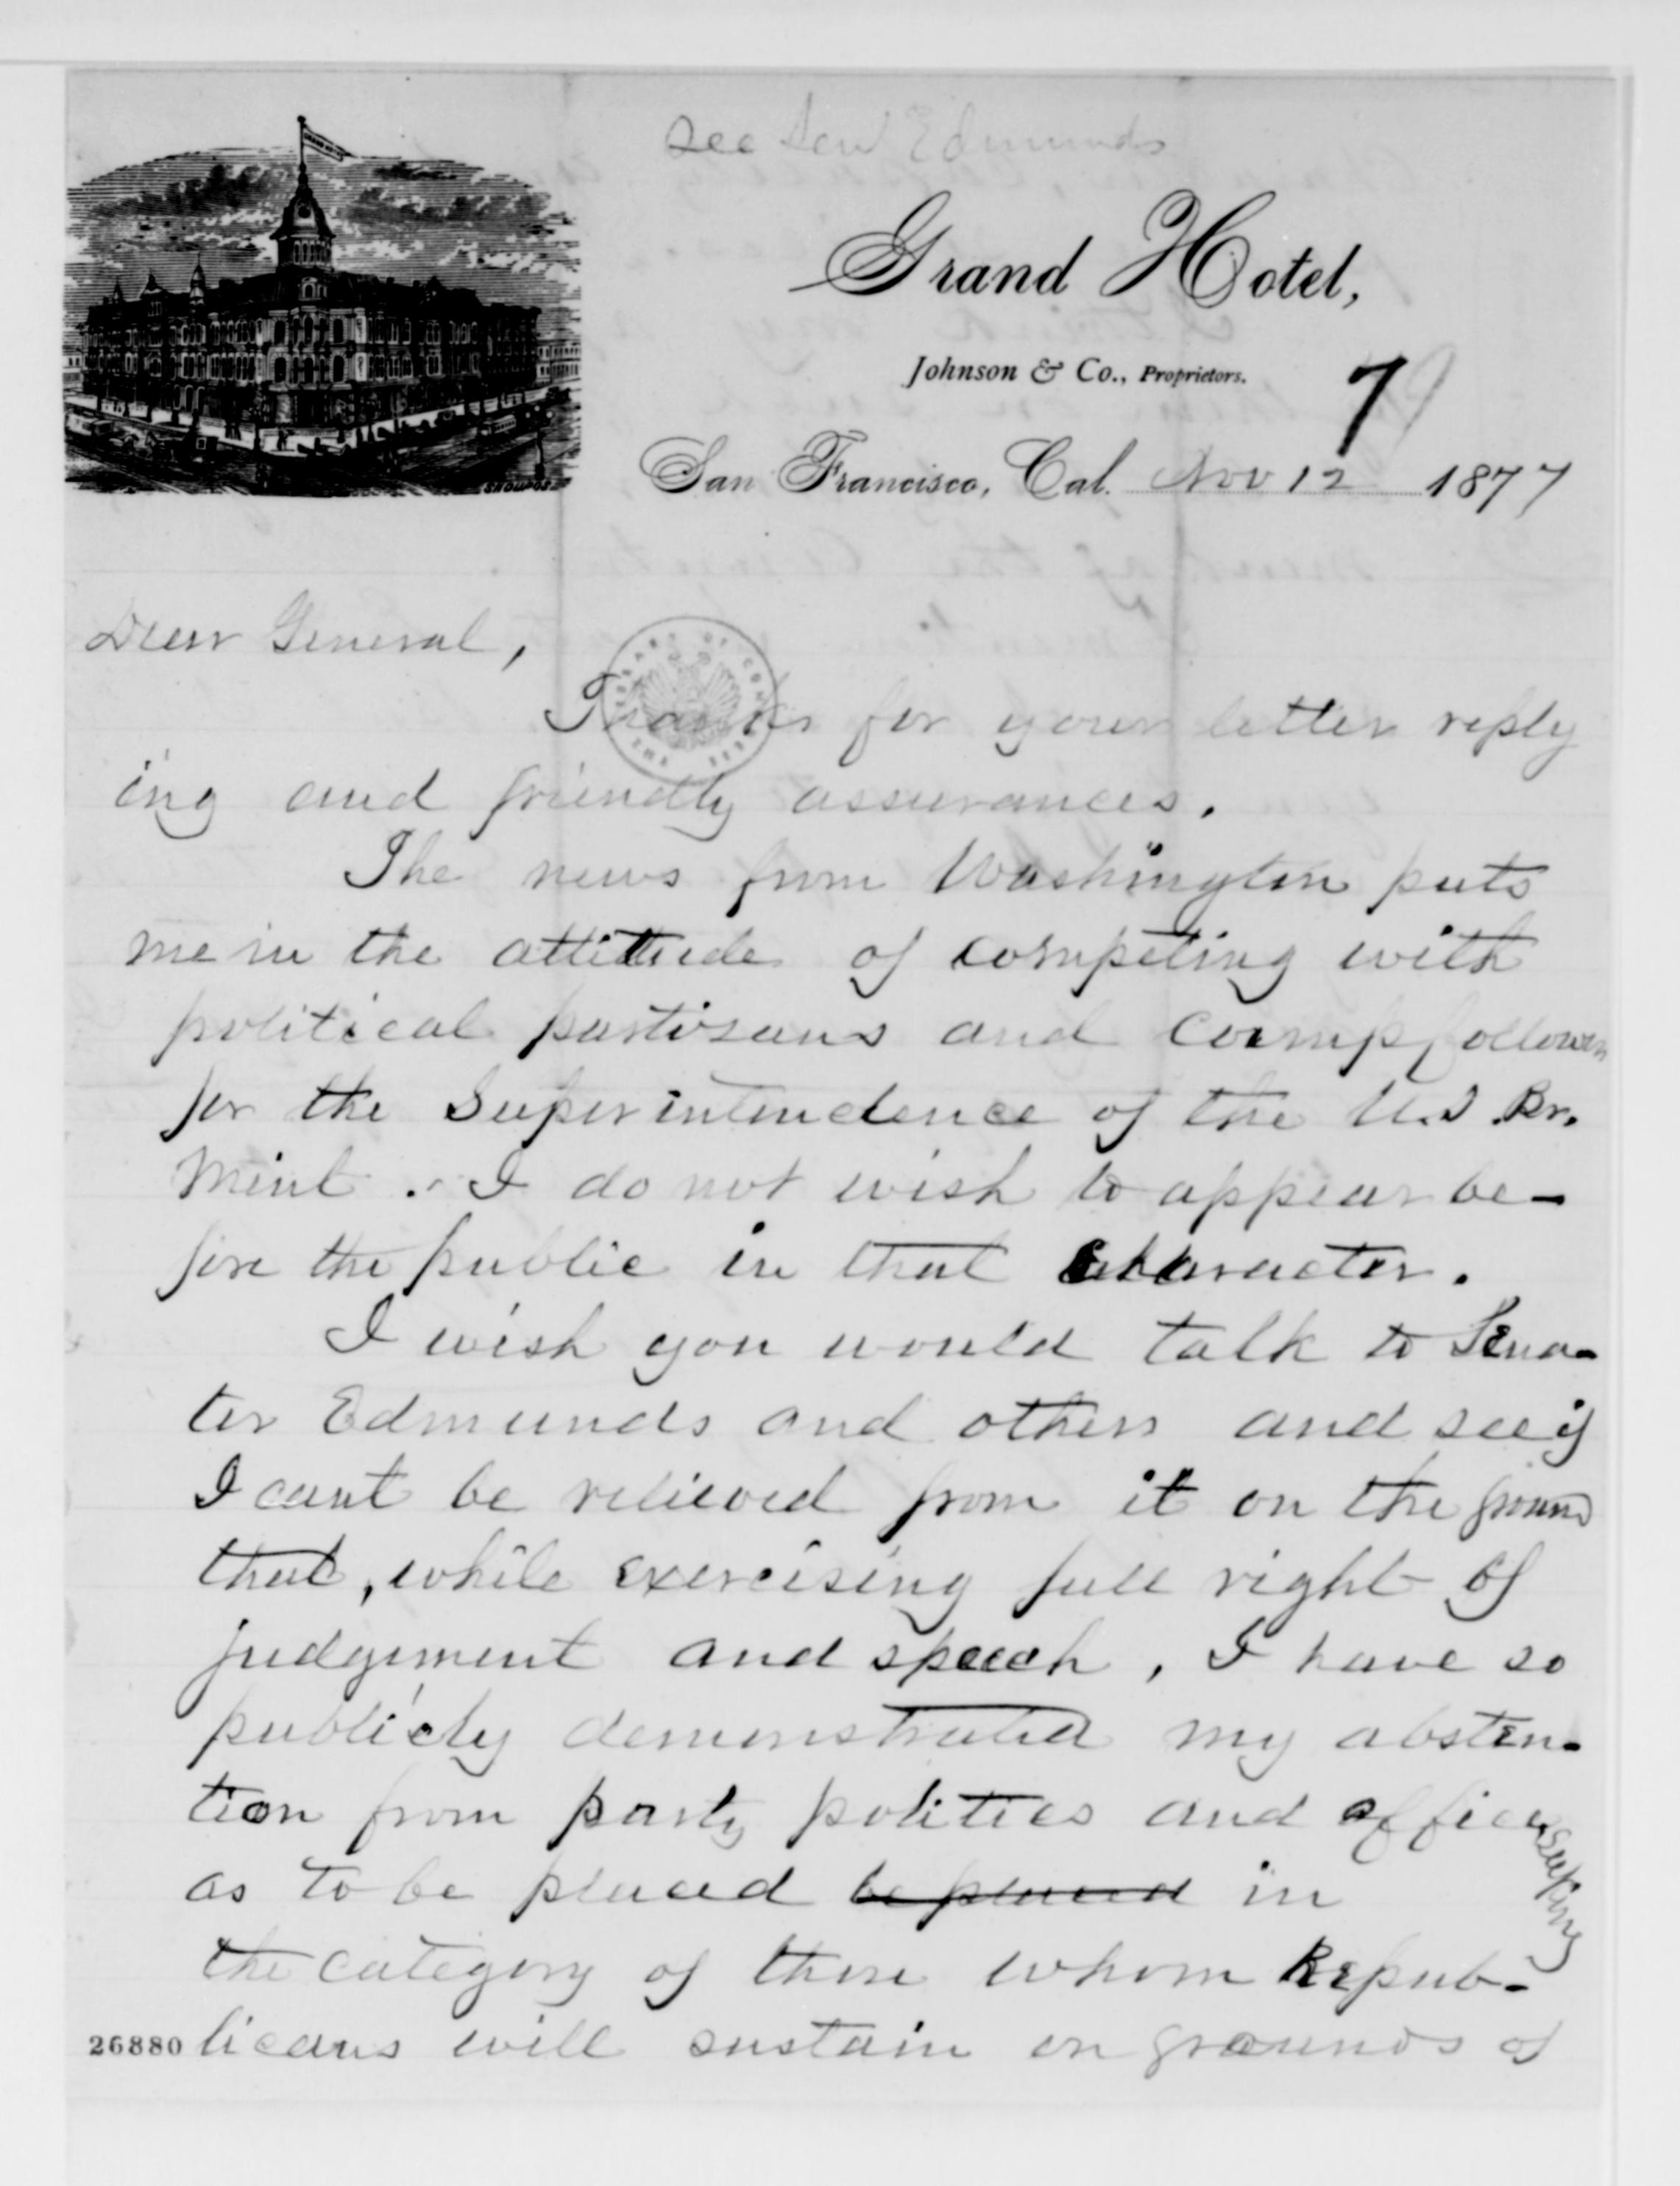 see Sen Edmunds
Grand Hotel,
Johnson & Co., Proprietors.
7
San Francisco, Cal. Nov 12 1877
Dear General,
Thanks for your letter reply
ing and friendly assurances.
The news from Washington puts
me in the attitude of competing with
political partizans and camp followers
for the Superintendence of the U.S. Br.
Mint. I do not wish to appear be-
fore the public in that character.
I wish you would talk to Sena-
tor Edmunds and others and see if
I cant be relieved from it on the ground
that, while exercising full right of
judgement and speech, I have so
publicly demonstrated my absten-
tion from party politics and office seeking
as to be placed be placed in
the category of those whom Repub-
licans will sustain on grounds of
26880